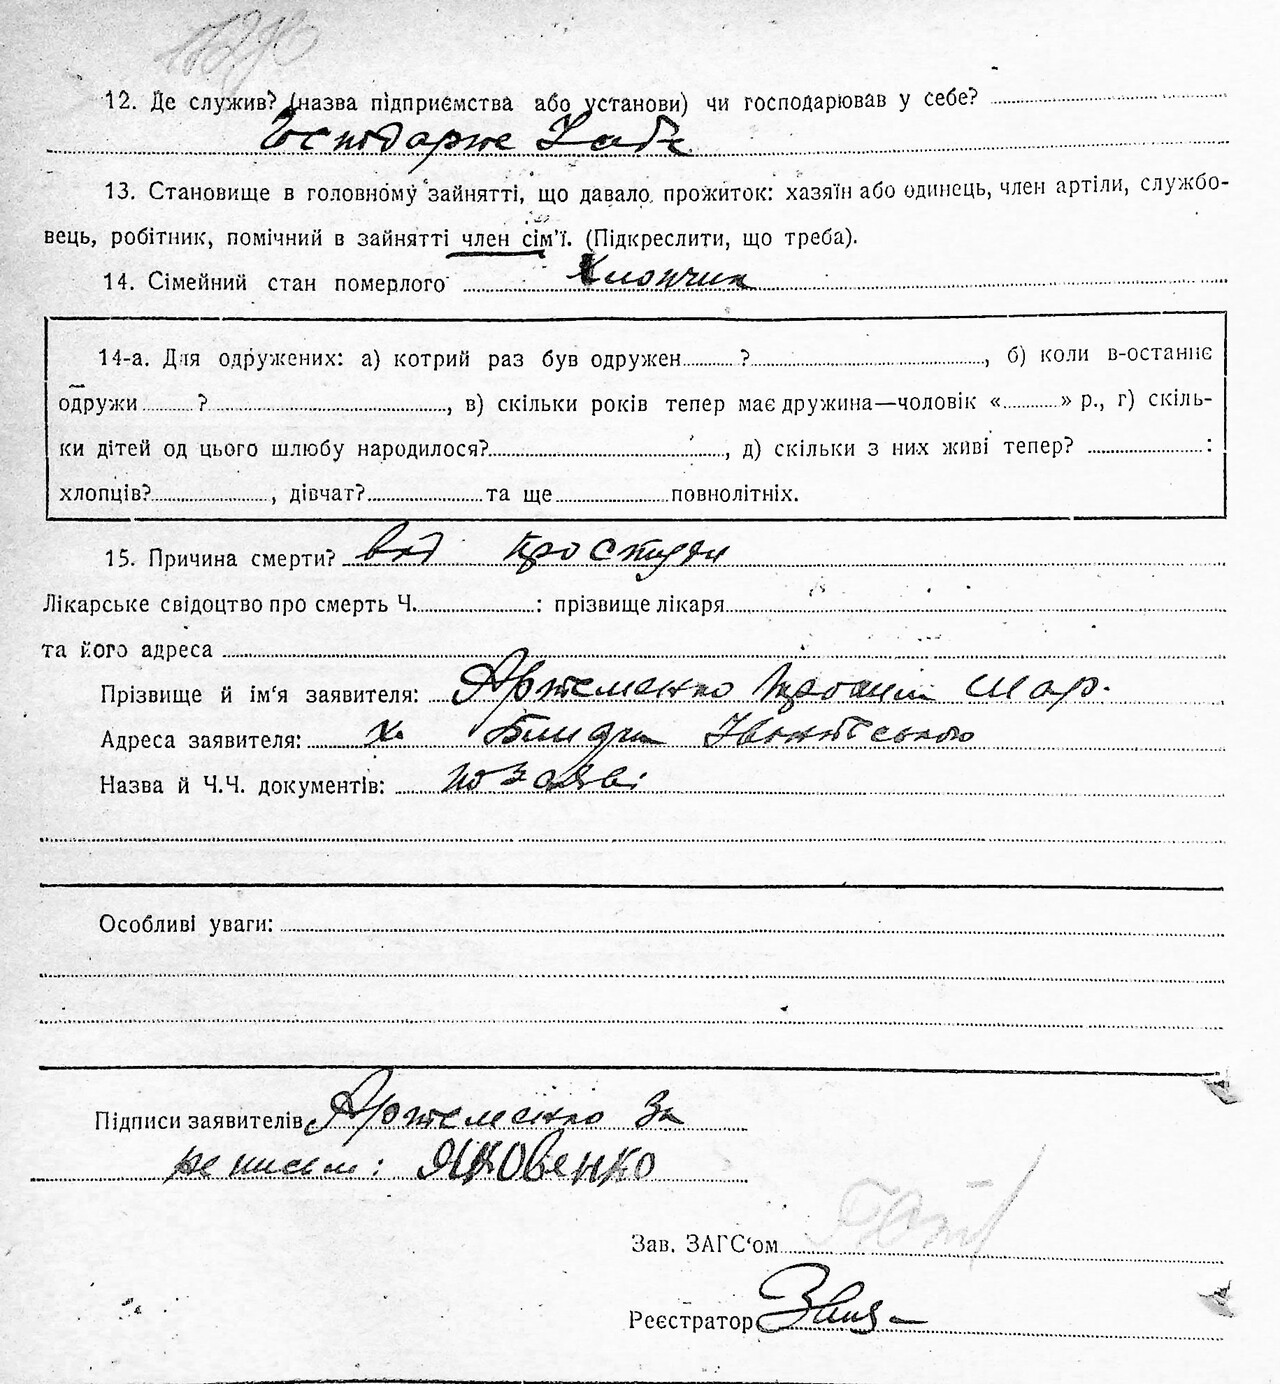 12. Де служив? (назва підприємства або установи) чи господарював у себе?
Господарює
13. Становище в головному зайнятті, що давало прожиток: хазяїн або одинець, член артіли, службо-
вець, робітник, помічний в зайнятті член сім'ї. (Підкреслити, що треба).
14. Сімейний стан померлого хлопчик
14-а. Для одружених: а) котрий раз був одружен ? , б) коли в-останнє
одружи ? , в) скільки років тепер має дружина—чоловік « » р., г) скіль-
ки дітей од цього шлюбу народилося? , д) скільки з них живі тепер? :
хлопців? , дівчат? та ще повнолітніх.
15. Причина смерти? від простуди
Лікарське свідоцтво про смерть Ч. : прізвище лікаря
та його адреса
Прізвище й ім'я заявителя: Артеменко
Адреса заявителя: х.
Назва й Ч.Ч. документів: по заяві
Особливі уваги:
Підписи заявителів Артеменко за
неписьм: Яковенко
Зав. ЗАГС'ом
Реєстратор